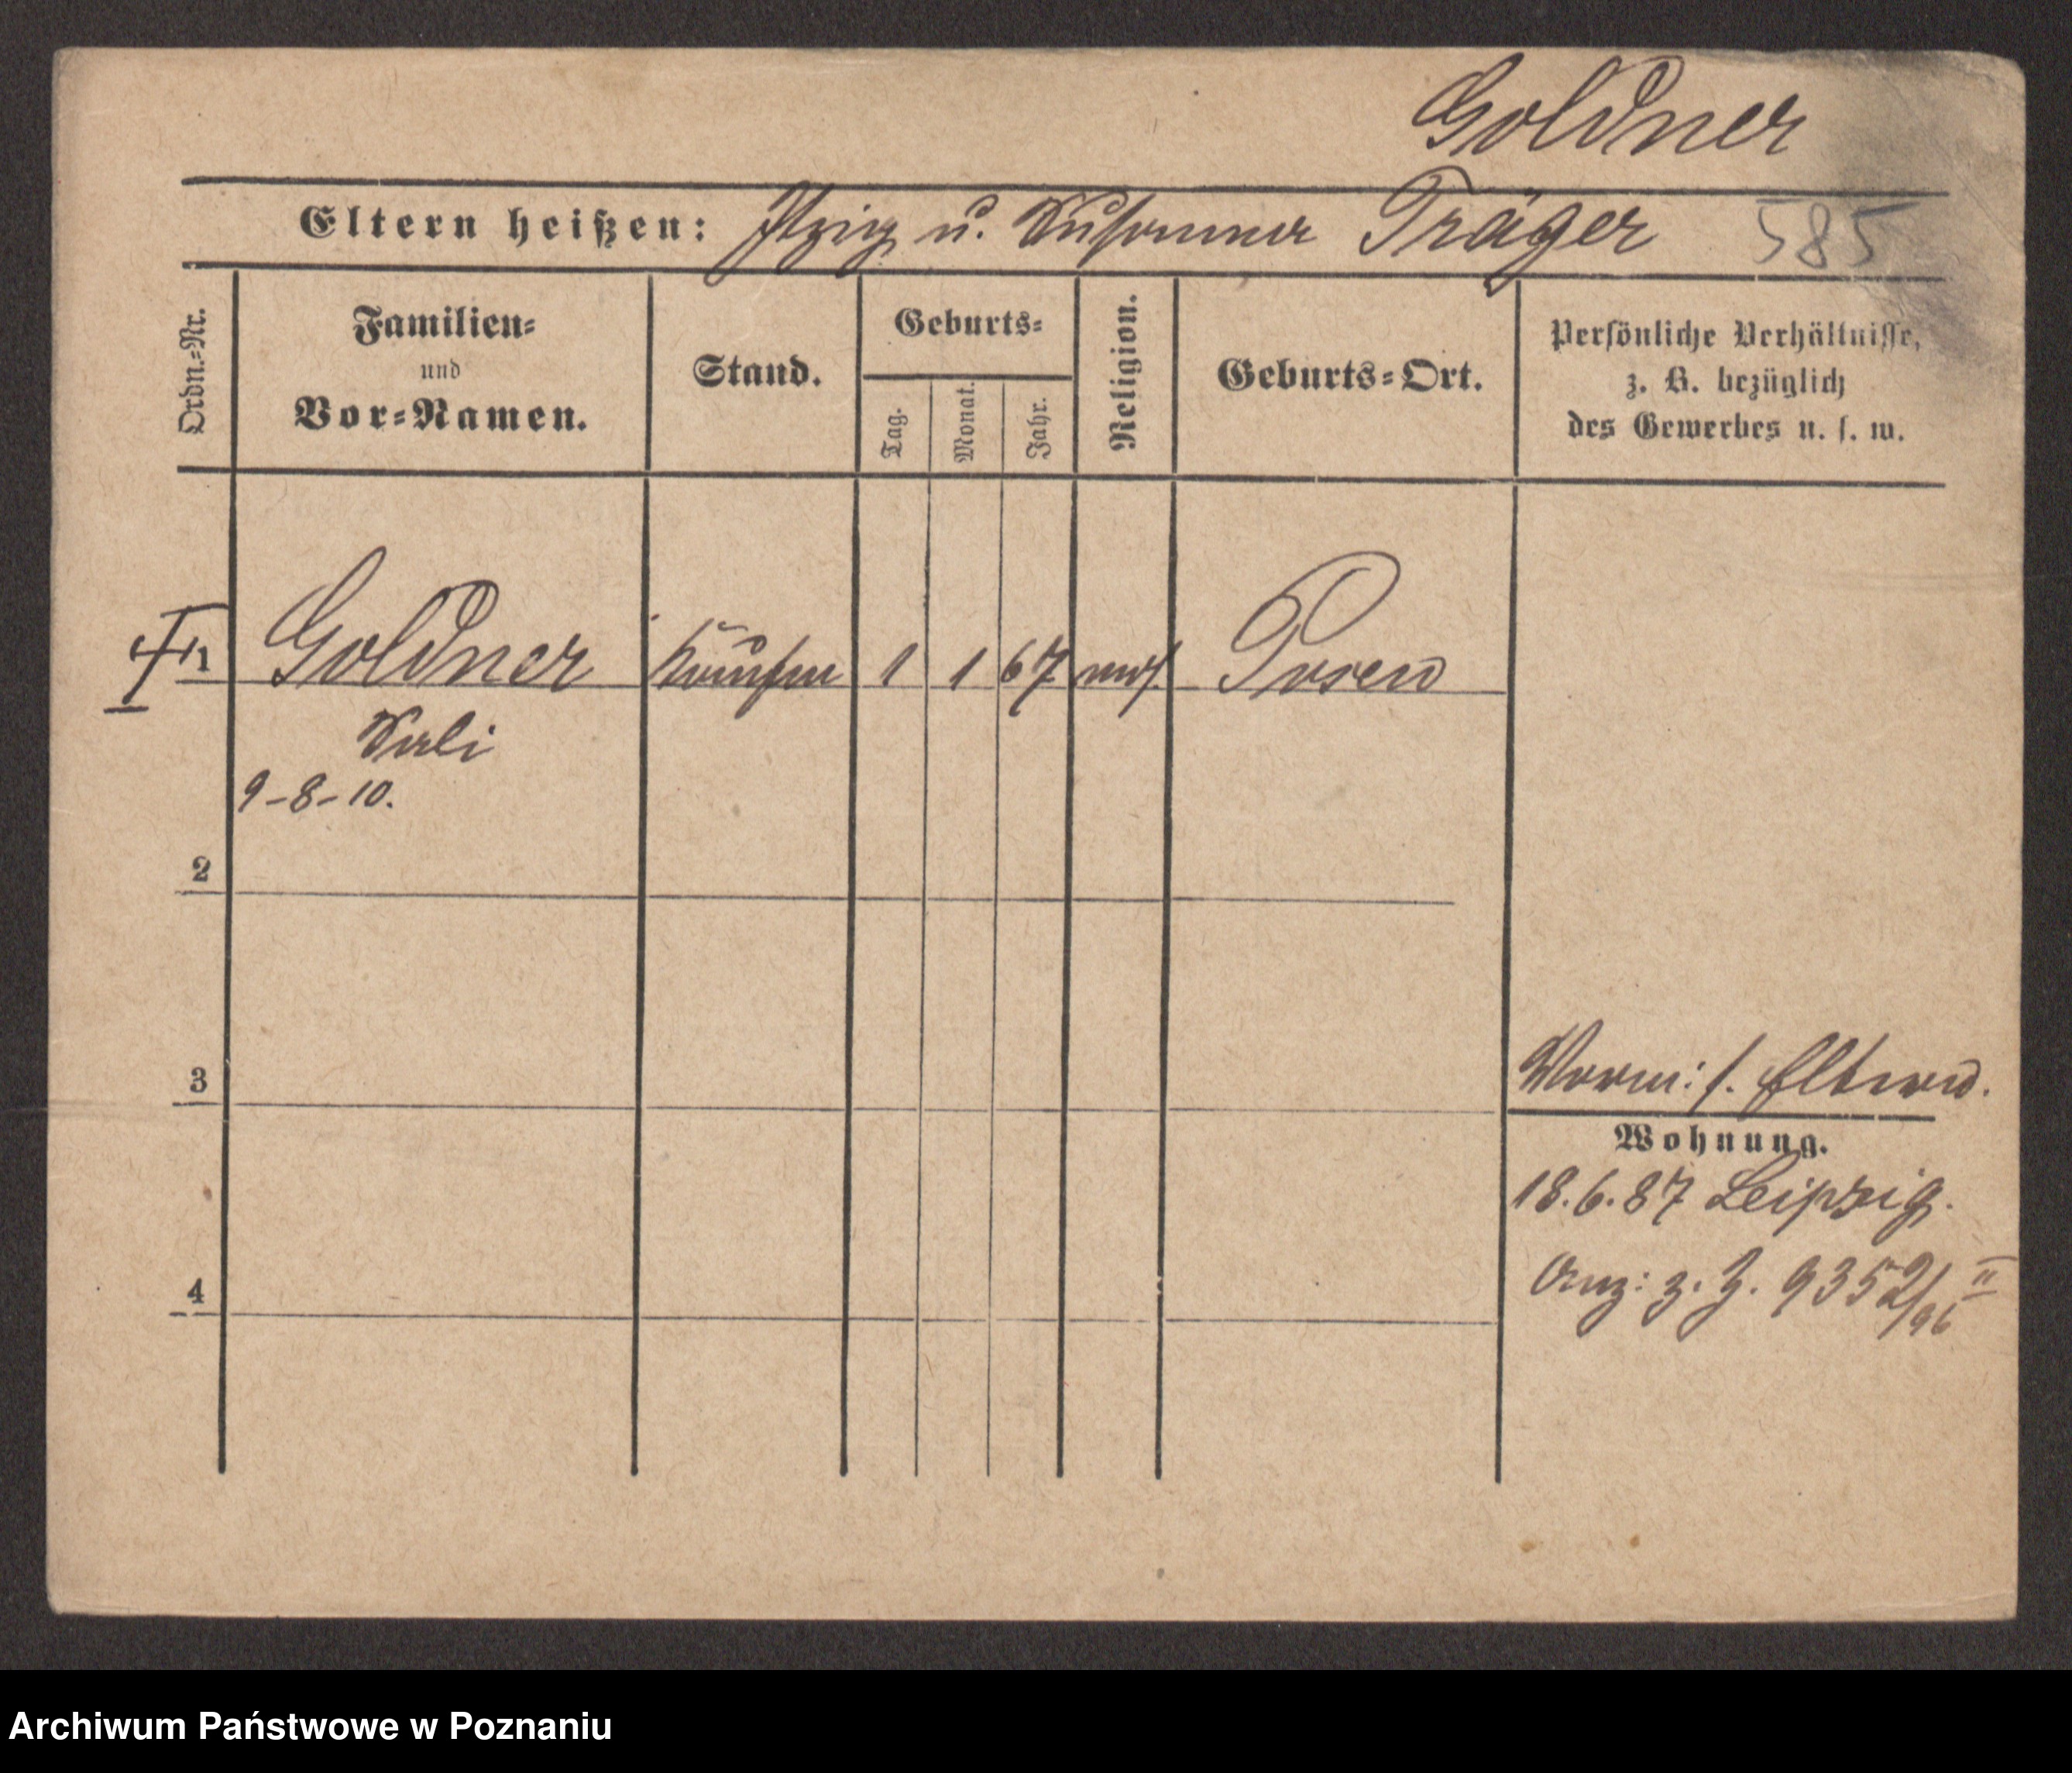 Goldner
Eltern heißen: Itzig u. Susanna Träger 585
Ordn.=Nr.
Familien=
und
Vor=Namen.
Stand.
Geburts=
Tag.
Monat.
Jahr.
Religion.
Geburts=Ort.
Persönliche Verhältnisse,
z. B. bezüglich
des Gewerbes u. s. w.
1 Goldner 1 1 67 mos. Posen
Sali
9-8-10.
2
3
Vorm: s. Eltern.
Wohnung.
18.6.87 Leipzig.
4
Anz: z. J. 9352/96 II
Archiwum Państwowe w Poznaniu